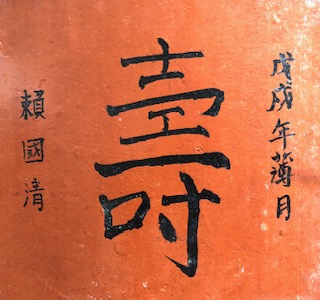 戊戌年蒲月
壽
賴國清